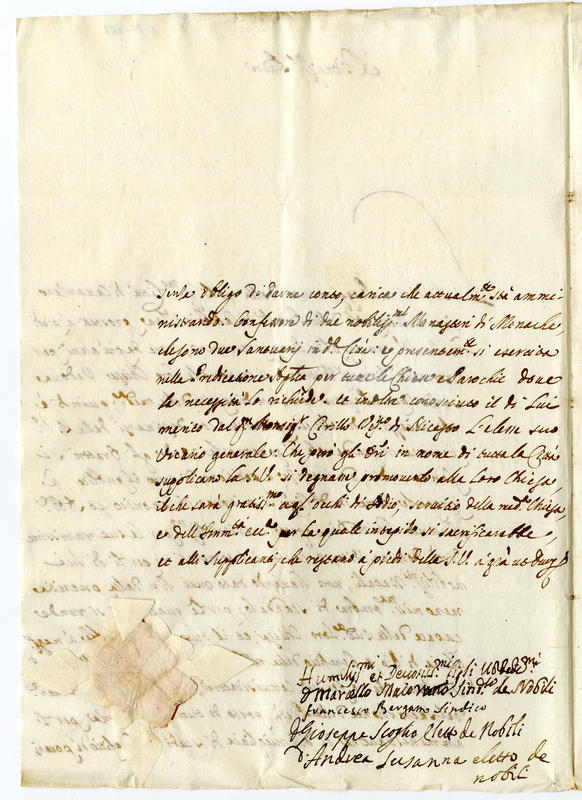 senza obligo di darne conto, carica che attualm.te stà ammi-
nistrando: Confessore di due nobiliss.mi Monasteri di Monache,
che sono due Santuarij in d.a Città: e presentem.te si esercita
nella Predicatione Ap.lica per tutte le Chiese e Parochie dove
la necessità lo richiede. et inoltre conosciuto il di Lui
merito dal q.m Monsig.r Cirillo Vesc.o di Nicastro L'elesse suo
Vicario generale. Che però gli Or.ri in nome di tutta la Città
supplicano la S.V. si degnare promoverlo alla Loro Chiesa,
il che sarà gratiss.mo agl'occhi di Iddio, servitio della med.a Chiesa,
e dell'Imm.tà eccl.a per la quale intrepido si sacrificarebbe,
et alli supplicanti, che restano à piedi della S.V.
Humiliss.mi et Devotiss.mi figli
D. Marcello Sind.co de Nobili
Francesco Bergamo Sindico
D. Gioseppe Scoglio Eletto de Nobili
D. Andrea Susanna eletto de
nobili